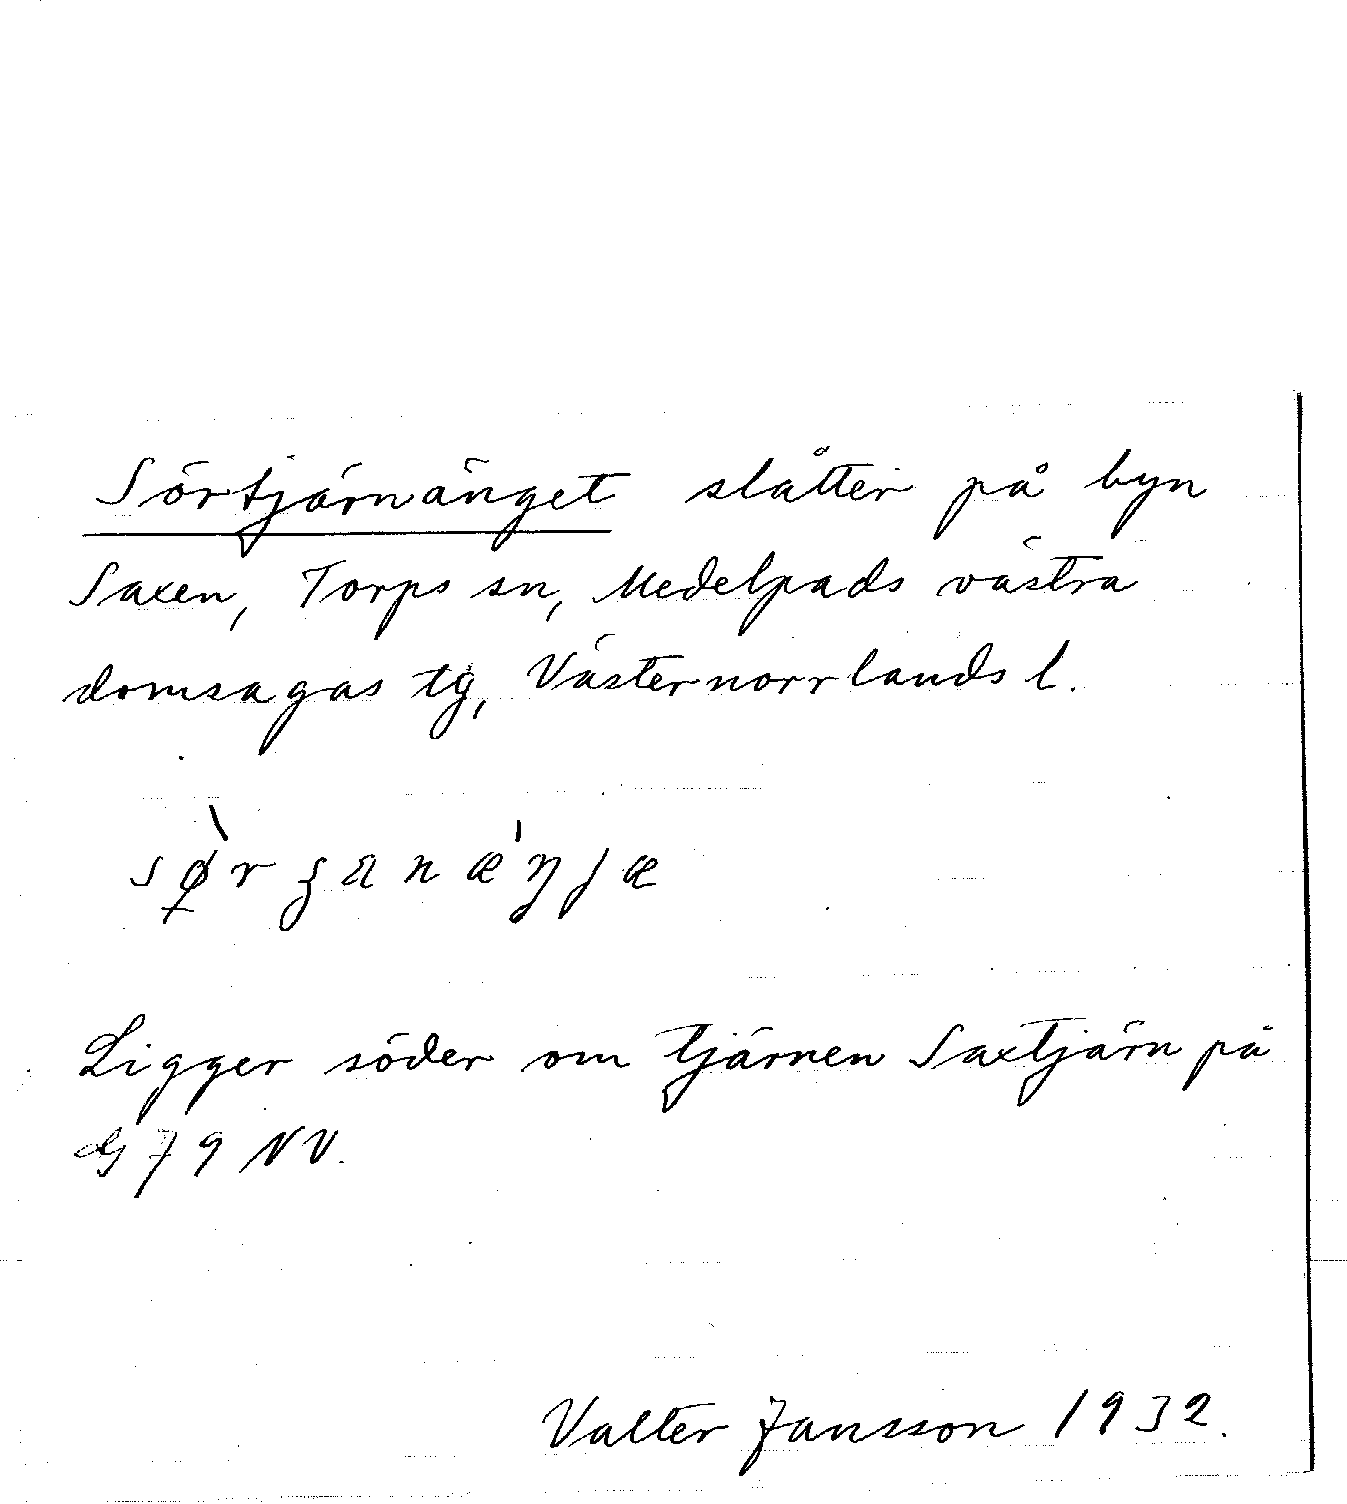 Sörtjärnänget slåtter på byn
Saxen, Torps sn, Medelpads västra
domsagas tg, Västernorrlands l.
Ligger söder om tjärnen Saxtjärn på
G 79 NV.
Valter Jansson 1932.